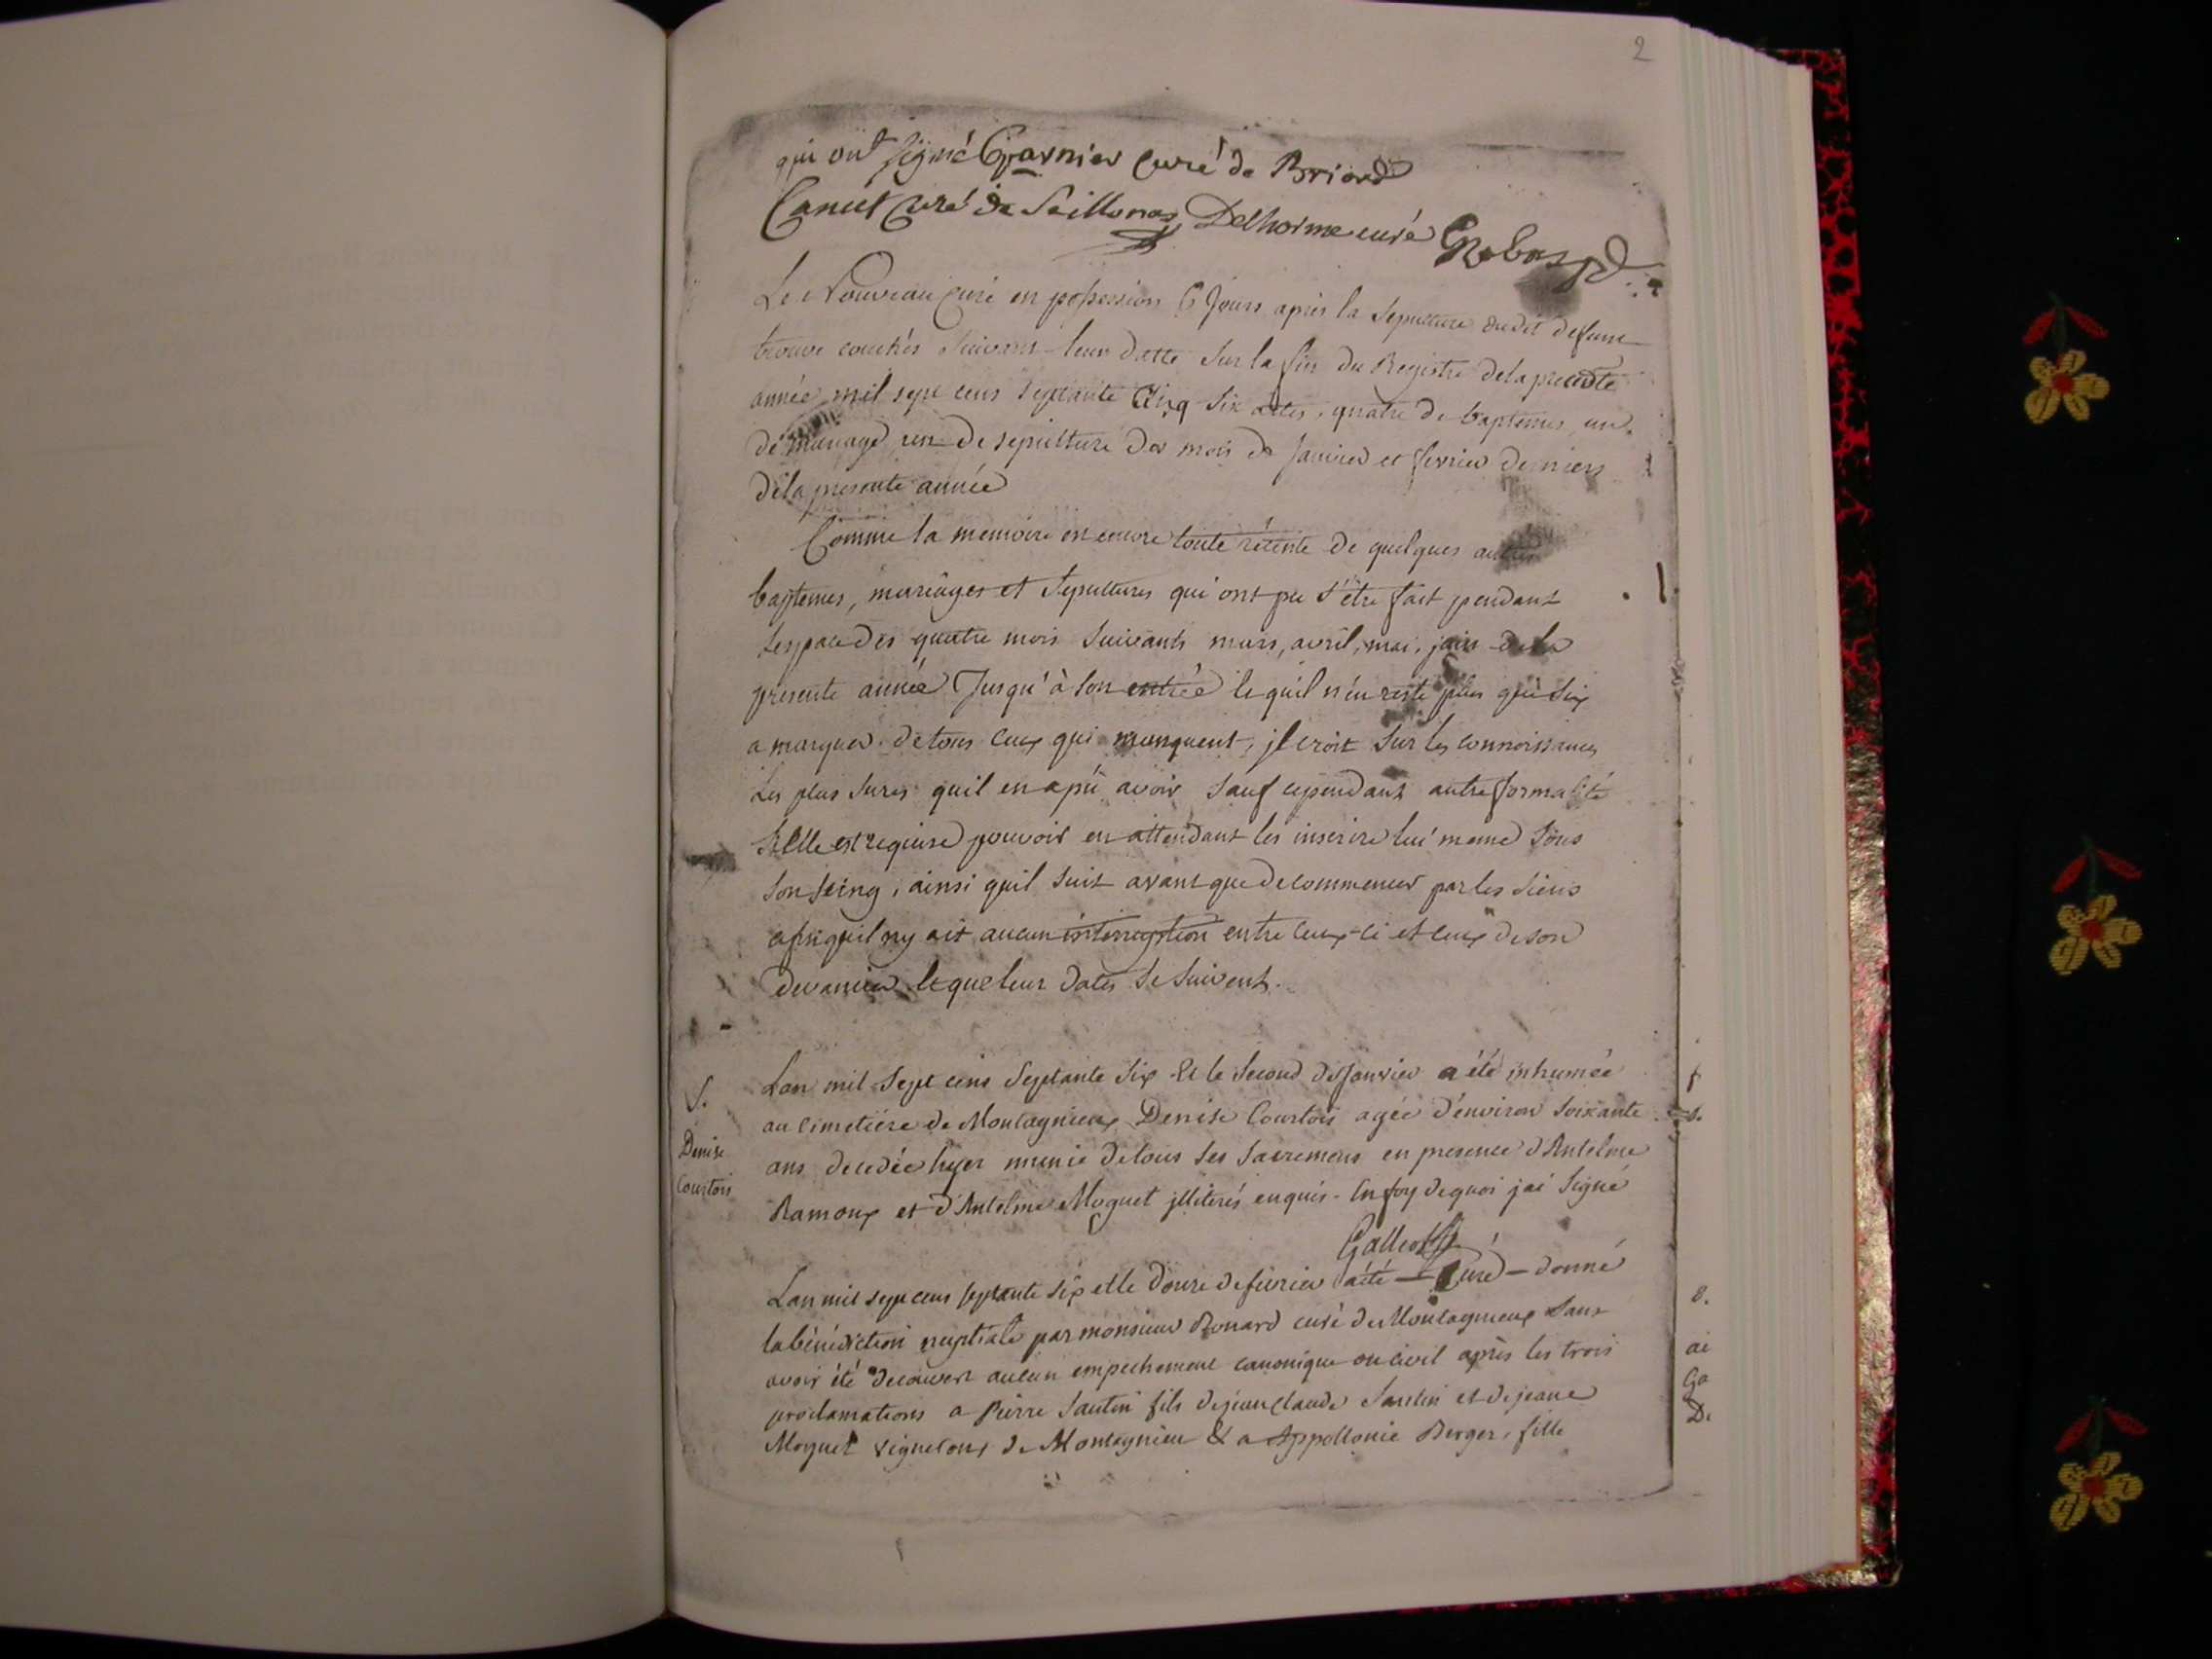 2
qui ont signé Garnier curé de Briord
Canut Curé de Seillonas Delhorme curé
Le Nouveau curé en possession 6 Jours après la sepulture dudit defunt
trouve couchés suivant leur datte sur la fin du Registre de la precedte
année mil sept cens septante Cinq six actes, quatre de baptemes, un
de mariage, un de sepulture des mois de Janvier et fevrier derniers
de la presente année
Comme la memoire en encore toute récente de quelques autres
baptemes, mariâges et sepultures qui ont pu s'être fait pendant
lespace des quatre mois suivants mars, avril, mai, juin de la
presente année Jusqu'à son entrée le quil n'en reste plus que six
a marquer de tous ceux qui manquent, jl croit sur les connoissances
Les plus sures quil en a pü avoir sauf cependant autre formalité
si Elle est requise pouvoir en attendant les inscrire lui meme sous
son seing, ainsi quil suit avant que de commencer par les siens
afin quil ny ait aucun interruption entre ceux-ci et ceux de son
devancier et que leur dates se suivent.
Lan mil sept cens septante six et le second de Janvier a été inhumée
au cimetiére de Montagnieux Denise Courtois agée d'environ soixante
ans decedée hyer munie de tous ses sacremens en presence d'Antelme
Ramoux et d'Antelme Moguet jlliterés enquis. En foy de quoi jai signé
S.
Denise
Courtois
Galleo
curé
Lan mil sept cens septante six et le douze de fevrier a été donné
la bénédiction nuptiale par monsieur Rouard curé de Montagnieux sans
avoir été decouvert aucun empechement canonique ou civil après les trois
proclamations a Pierre Santin fils de jean claude Santin et de jeane
Moguet vignerons de Montagnieu & a Appollonie Berger, fille
s.
ai
Ga
D.